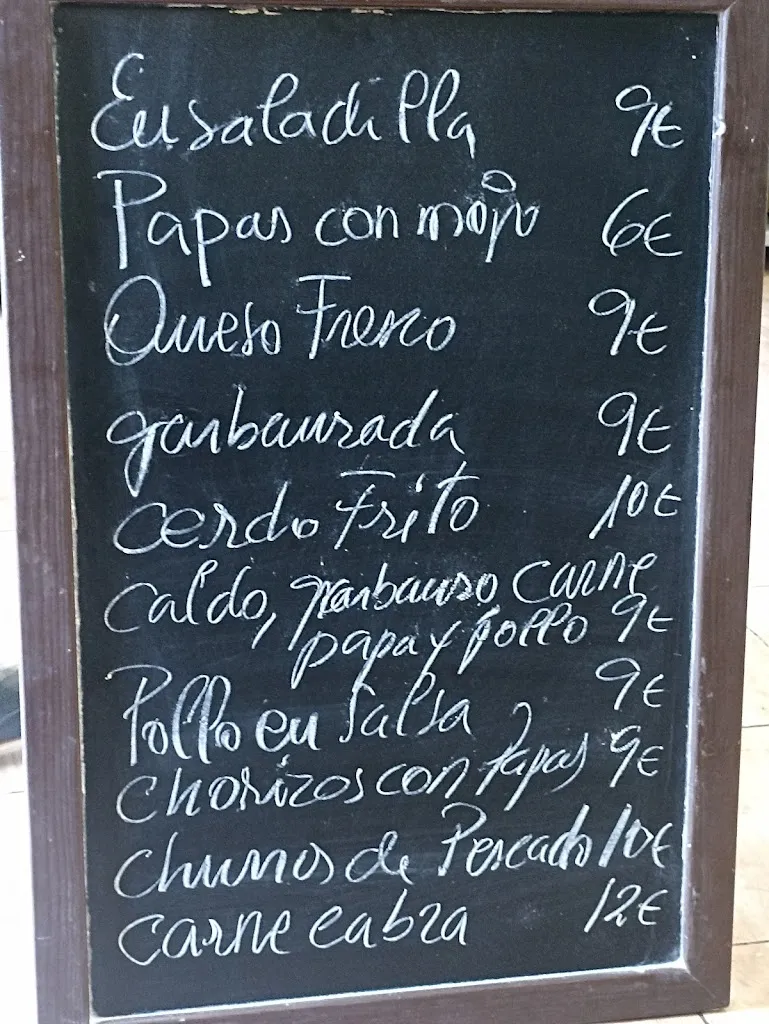 Ensaladilla 9€
Papas con mojo 6€
Queso Fresco 9€
garbanzada 9€
cerdo Frito 10€
caldo, garbanso, carne
papa y pollo 9€
Pollo en salsa 9€
chorizos con papas 9€
churros de Pescado 10€
carne cabra 12€